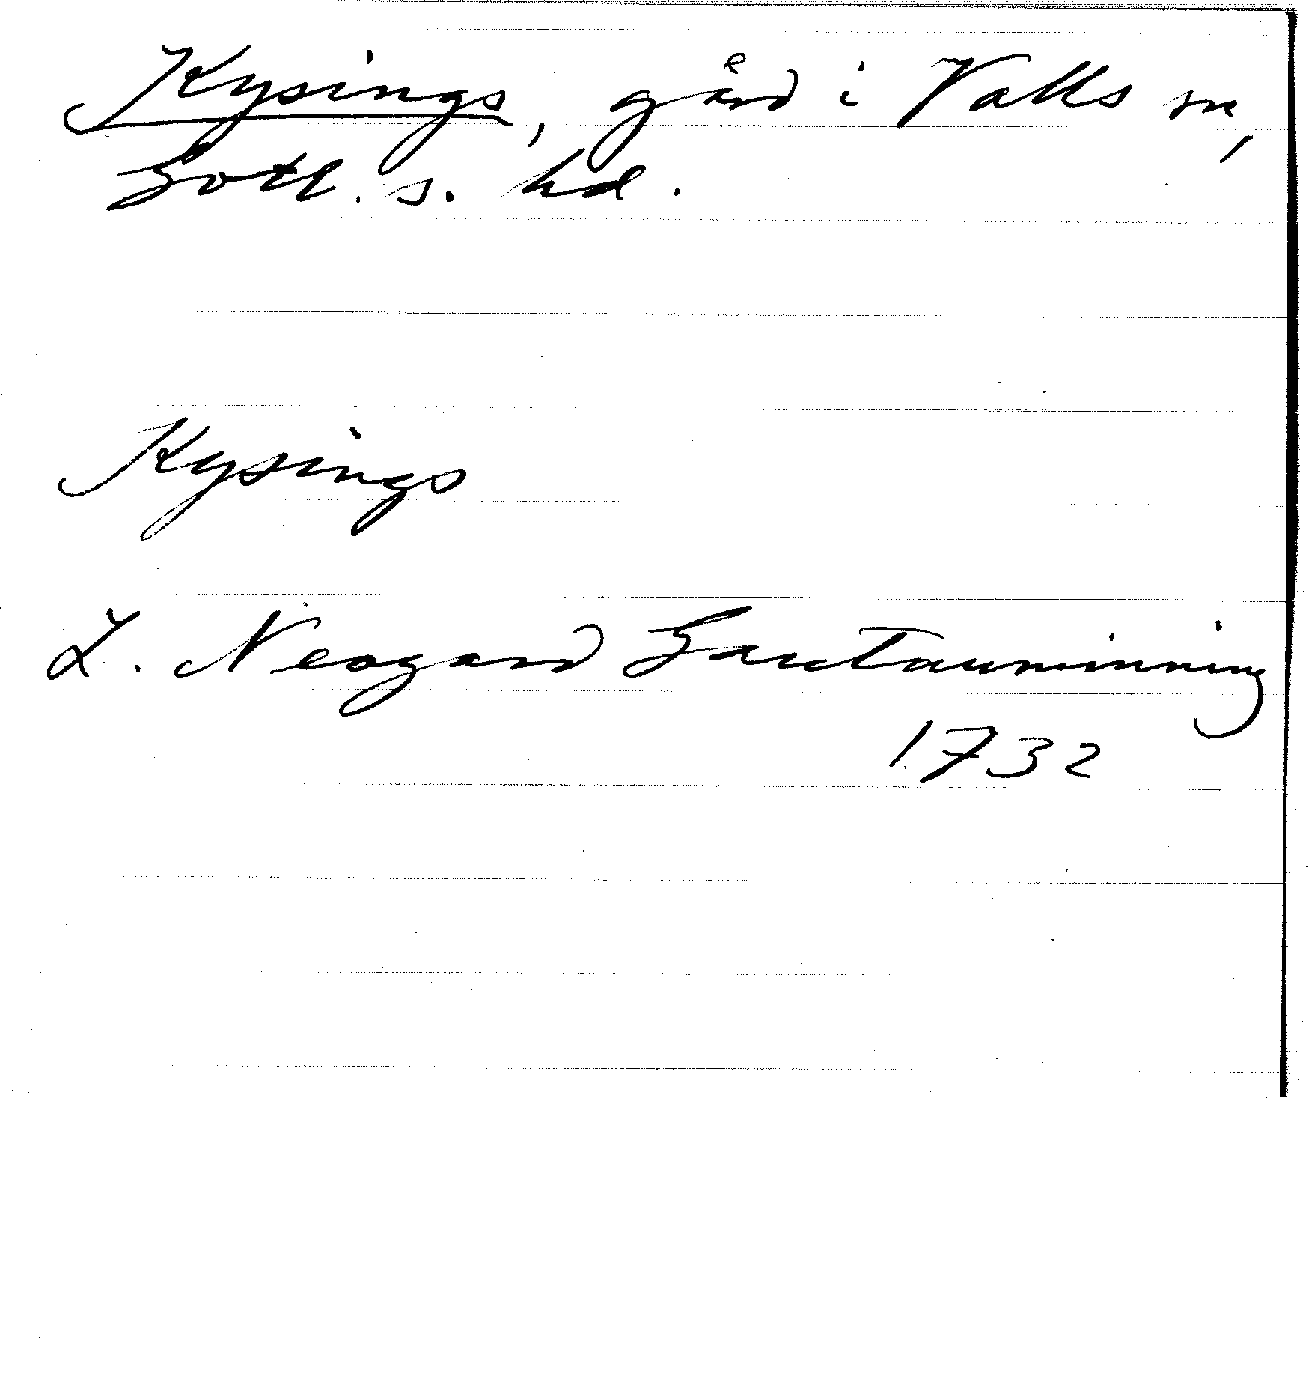 Kysings, gård i Valls sn,
Gotl. s. hd.
Kysings
Z. Neogard Gautauminning
1732